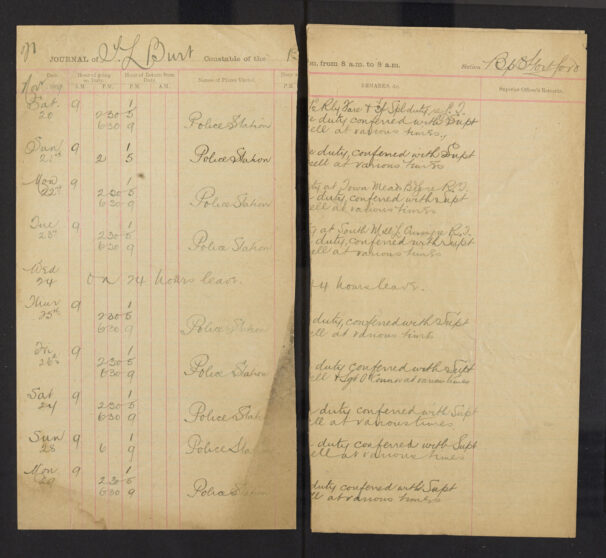 JOURNAL of J L Burt Constable of the
m, from 8 a.m. to 8 a.m. Station B. S. Stortford
Date Hour of going on Duty. Hour of Return from Duty. Names of Places Visited.
A.M. P.M. A.M. P.M. P.M.
REMARKS, &c. Superior Officer's Remarks.
Nov.
Sat. 9 1
20 2-30 5
6-30 9 Police Station
Rly Fare + Spl duty
duty conferred with Supt
ell at various times
Sun 9 1
21st 2 5 Police Station
duty, conferred with Supt
ell at various times
Mon 9 1
22nd 2-30 5
6-30 9 Police Station
at Town Mead
duty, conferred with Supt
ell at various times
Tue 9 1
23rd 2-30 5
6-30 9 Police Station
at South Mill
duty, conferred with Supt
ell at various times
Wed
24 On 24 hours leave.
4 hours leave.
Thur 9 1
25th 2-30 5
6-30 9 Police Station
duty, conferred with Supt
ell at various times
Fri 9 1
26th 2-30 5
6-30 9 Police Station
duty conferred with Supt
ell + Sgt O'Connor at various times
Sat 9 1
27 2-30 5
6-30 9 Police Station
duty conferred with Supt
ell at various times
Sun 9 1
28 6 9 Police Sta
duty conferred with Supt
ell at various times
Mon 9 1
29 2-30 5
6-30 9 Police Station
duty conferred with Supt
ell at various times